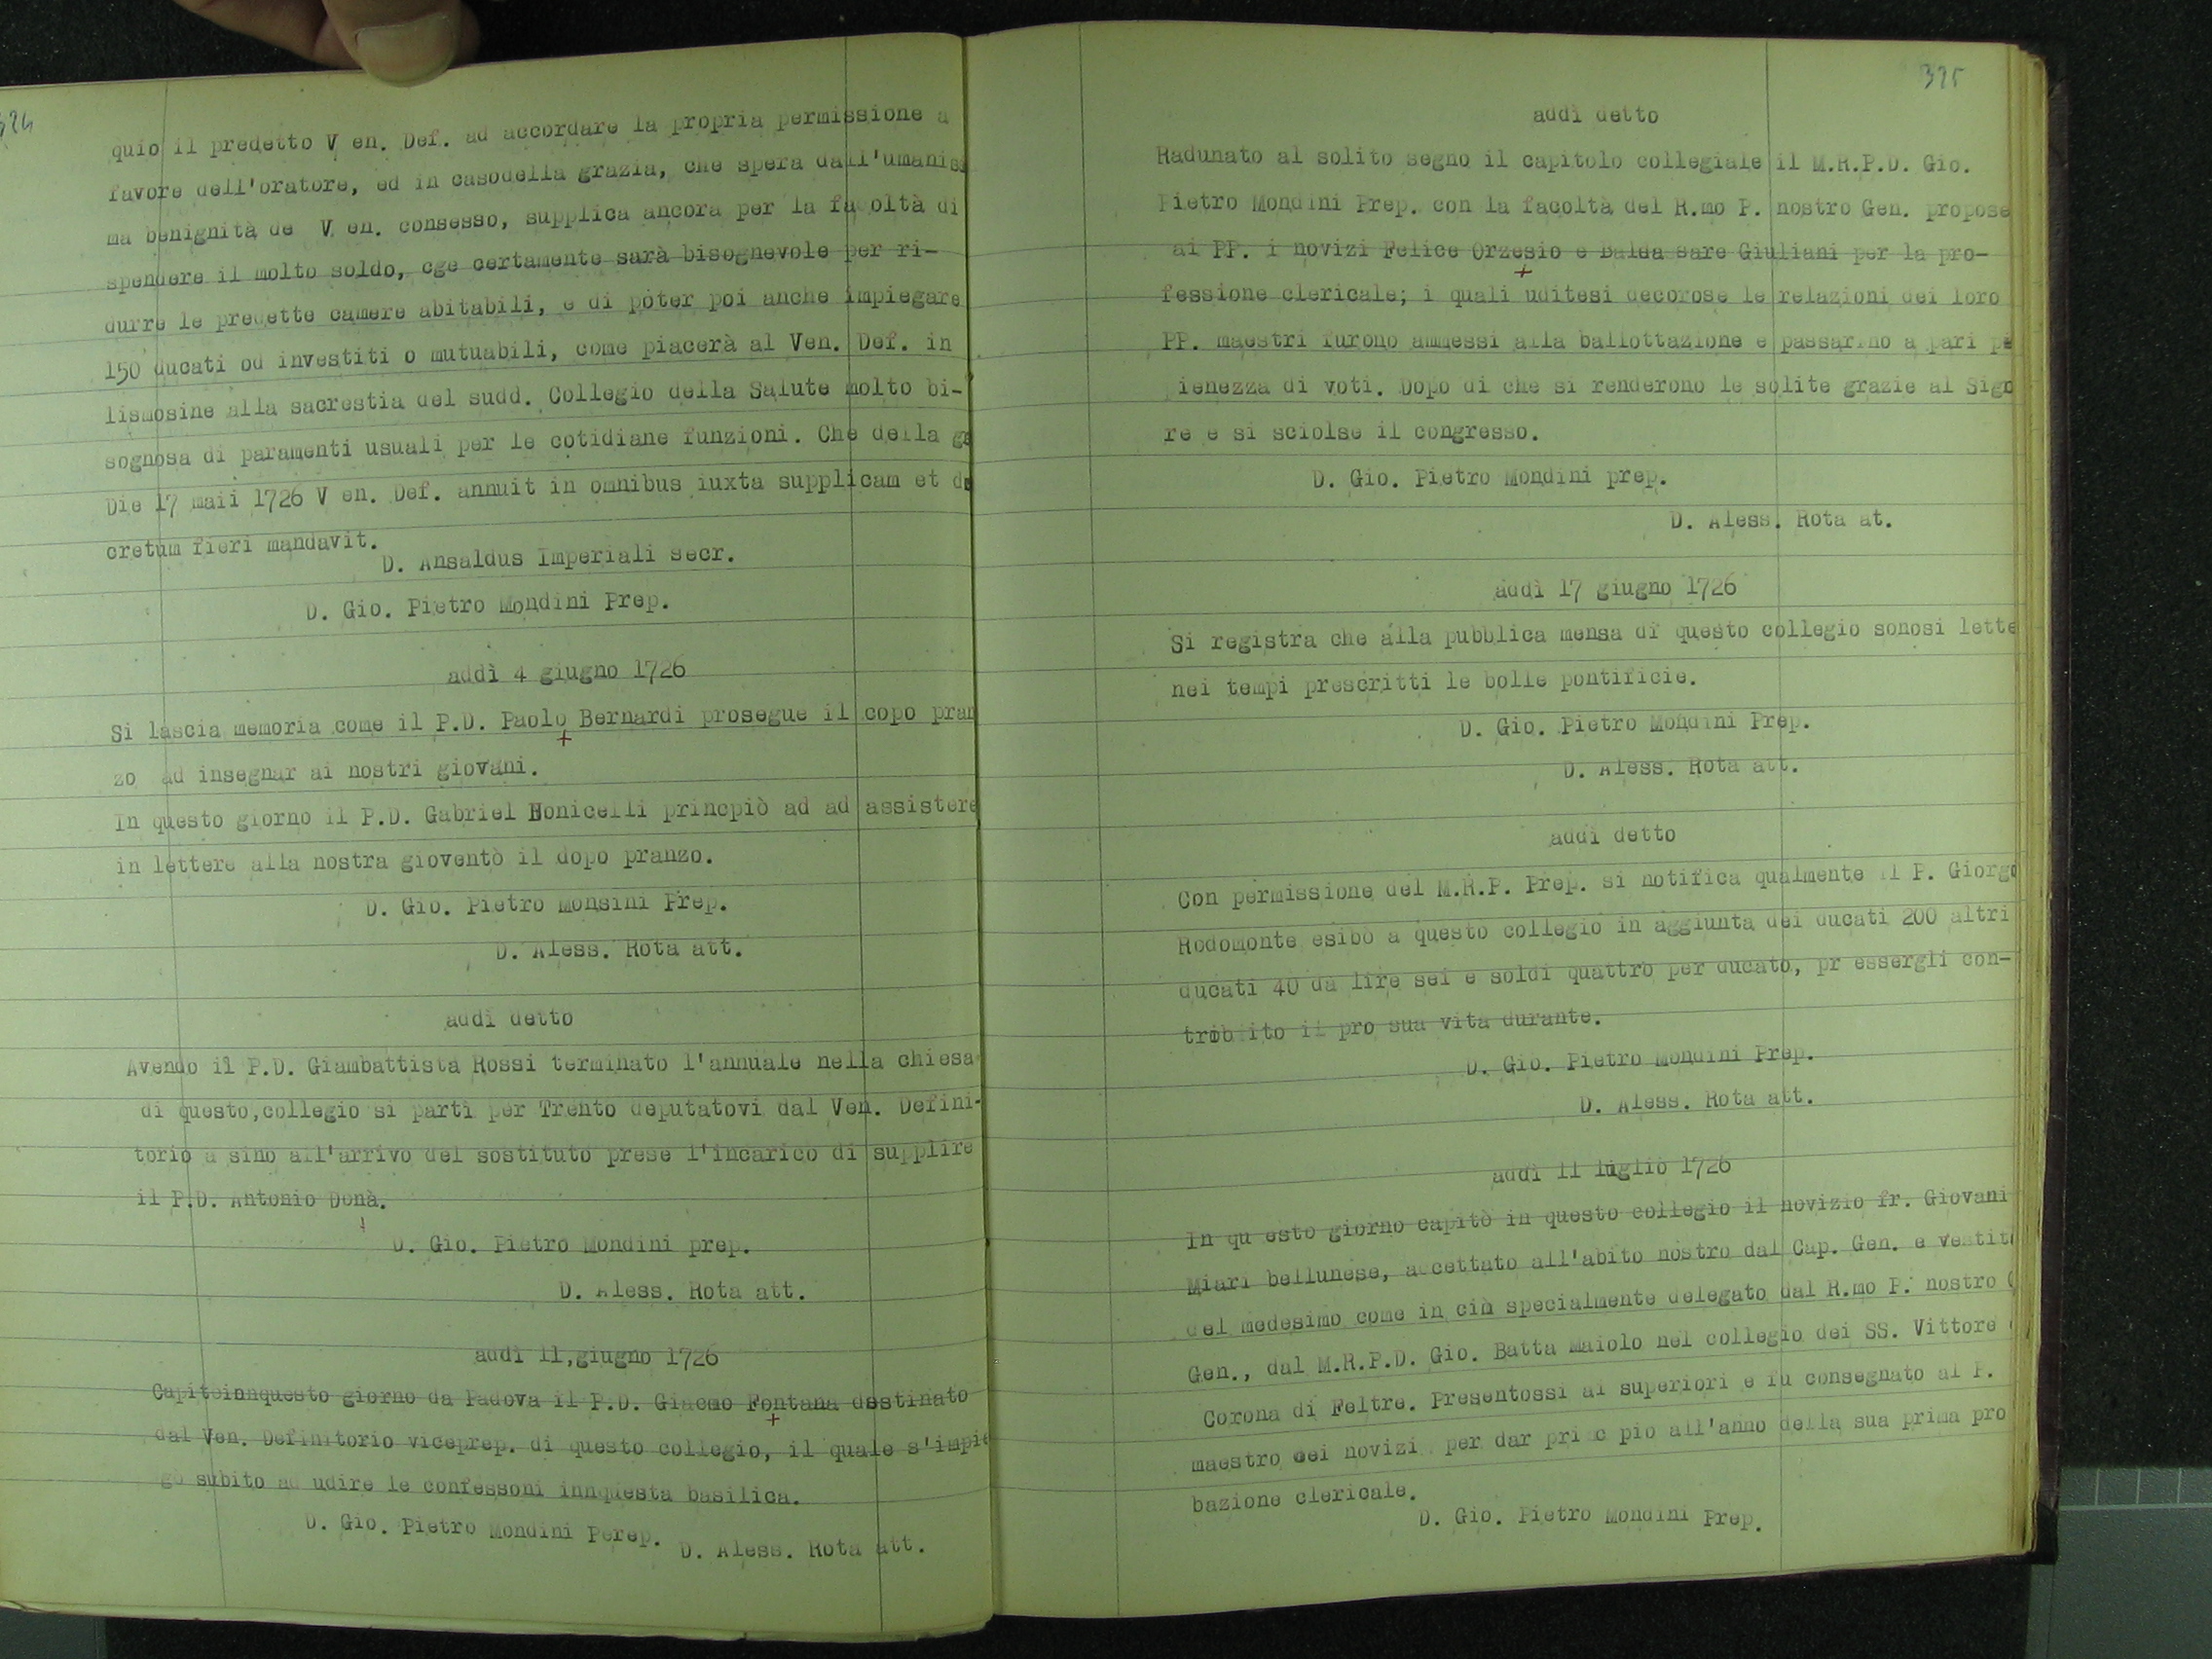 324
quio il predetto V en. Def. ad accordare la propria permissione a
favore dell'oratore, ed in casodella grazia, che spera dall'umanis
ma benignità de V en. consesso, supplica ancora per la fa oltà di
spendere il molto soldo, cge certamente sarà bisognevole per ri-
durre le predette camere abitabili, e di poter poi anche impiegare
150 ducati od investiti o mutuabili, come piacerà al Ven. Def. in
lismosine alla sacrestia del sudd. Collegio della Salute molto bi-
sognosa di paramenti usuali per le cotidiane funzioni. Che della
Die 17 maii 1726 V en. Def. annuit in omnibus iuxta supplicam et de
cretum fieri mandavit.
D. Ansaldus Imperiali secr.
D. Gio. Pietro Mondini Prep.
addì 4 giugno 1726
Si lascia memoria come il P.D. Paolo Bernardi prosegue il copo pran
zo ad insegnar ai nostri giovani.
In questo giorno il P.D. Gabriel Bonicelli princpiò ad ad assistere
in lettere alla nostra gioventò il dopo pranzo.
D. Gio. Pietro Monsini Prep.
D. Aless. Rota att.
addì detto
Avendo il P.D. Giambattista Rossi terminato l'annuale nella chiesa
di questo,collegio si partì per Trento deputatovi dal Ven. Defini-
torio a sino all'arrivo del sostituto prese l'incarico di supplire
il P.D. Antonio Donà.
D. Gio. Pietro Mondini prep.
D. Aless. Rota att.
addì 11,giugno 1726
Capitoinnquesto giorno da Padova il P.D. Giacmo Fontana destinato
dal Ven. Definitorio viceprep. di questo collegio, il quale s'impie
gò subito ad udire le confessoni innquesta basilica.
D. Gio. Pietro Mondini Perep.
D. Aless. Rota att.
325
addì detto
Radunato al solito segno il capitolo collegiale il M.R.P.D. Gio.
Pietro Mondini Prep. con la facoltà del R.mo P. nostro Gen. propose
ai PP. i novizi Felice Orzesio e Balda sare Giuliani per la pro-
fessione clericale; i quali uditesi decorose le relazioni dei loro
PP. maestri furono ammessi alla ballottazione e passarino a pari pe
ienezza di voti. Dopo di che si renderono le solite grazie al Sigo
re e si sciolse il congresso.
D. Gio. Pietro Mondini prep.
D. Aless. Rota at.
addì 17 giugno 1726
Si registra che alla pubblica mensa di questo collegio sonosi lette
nei tempi prescritti le bolle pontificie.
D. Gio. Pietro Mondini Prep.
D. Aless. Rota att.
addì detto
Con permissione del M.R.P. Prep. si notifica qualmente il P. Giorgo
Rodomonte esibò a questo collegio in aggiunta dei ducati 200 altri
ducati 40 da lire sei e soldi quattro per ducato, pr essergli con-
trib ito il pro sua vita durante.
D. Gio. Pietro Mondini Prep.
D. Aless. Rota att.
addì 11 luglio 1726
In qu esto giorno capitò in questo collegio il novizio fr. Giovani
Miari bellunese, accettato all'abito nostro dal Cap. Gen. e vestito
del medesimo come in ciò specialmente delegato dal R.mo P. nostro
Gen., dal M.R.P.D. Gio. Batta Maiolo nel collegio dei SS. Vittore
Corona di Feltre. Presentossi ai superiori e fu consegnato al P.
maestro dei novizi per dar princ pio all'anno della sua prima pro
bazione clericale.
D. Gio. Pietro Mondini Prep.